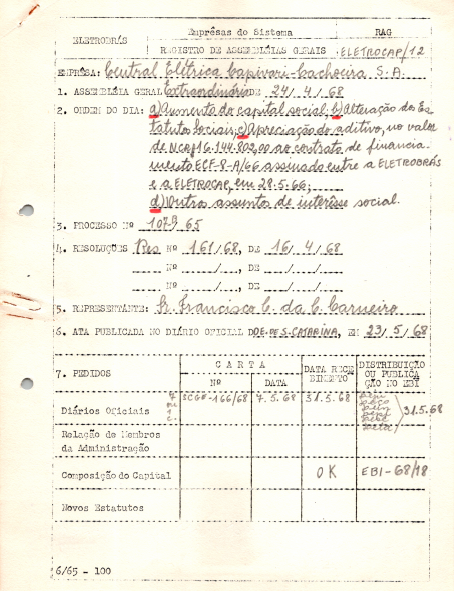 ELETROBRÁS
Emprêsas do Sistema
RAG
REGISTRO DE ASSEMBLÉIAS GERAIS
ELETROCAP/12
EMPRÊSA: Central Elétrica Capivari-Cachoeira S.A.
1. ASSEMBLÉIA GERAL Extraordinária DE 24/4/68
2. ORDEM DO DIA: a) Aumento do capital social; b) Alteração dos Es-
tatutos Sociais; c) Apreciação do aditivo, no valor
de NCr$ 16.144.802,00 ao contrato de financia-
mento ECF-8-A/66 assinado entre a ELETROBRÁS
e a ELETROCAP, em 28.5.66;
d) Outros assuntos de interêsse social.
3. PROCESSO Nº 1079/65
4. RESOLUÇÕES Res Nº 161/68, DE 16/4/68
Nº / , DE / /
Nº / , DE / /
5. REPRESENTANTE: Sr. Francisco C. da C. Carneiro
6. ATA PUBLICADA NO DIÁRIO OFICIAL DE S. CATARINA, EM 23/5/68
7. PEDIDOS
CARTA
Nº
DATA
DATA RECEBIMENTO
DISTRIBUIÇÃO OU PUBLICAÇÃO NO EBI
Diários Oficiais
166/68 7.5.68 31.5.68
31.5.68
Relação de Membros
da Administração
Composição do Capital OK EBI-68/18
Novos Estatutos
6/65 - 100